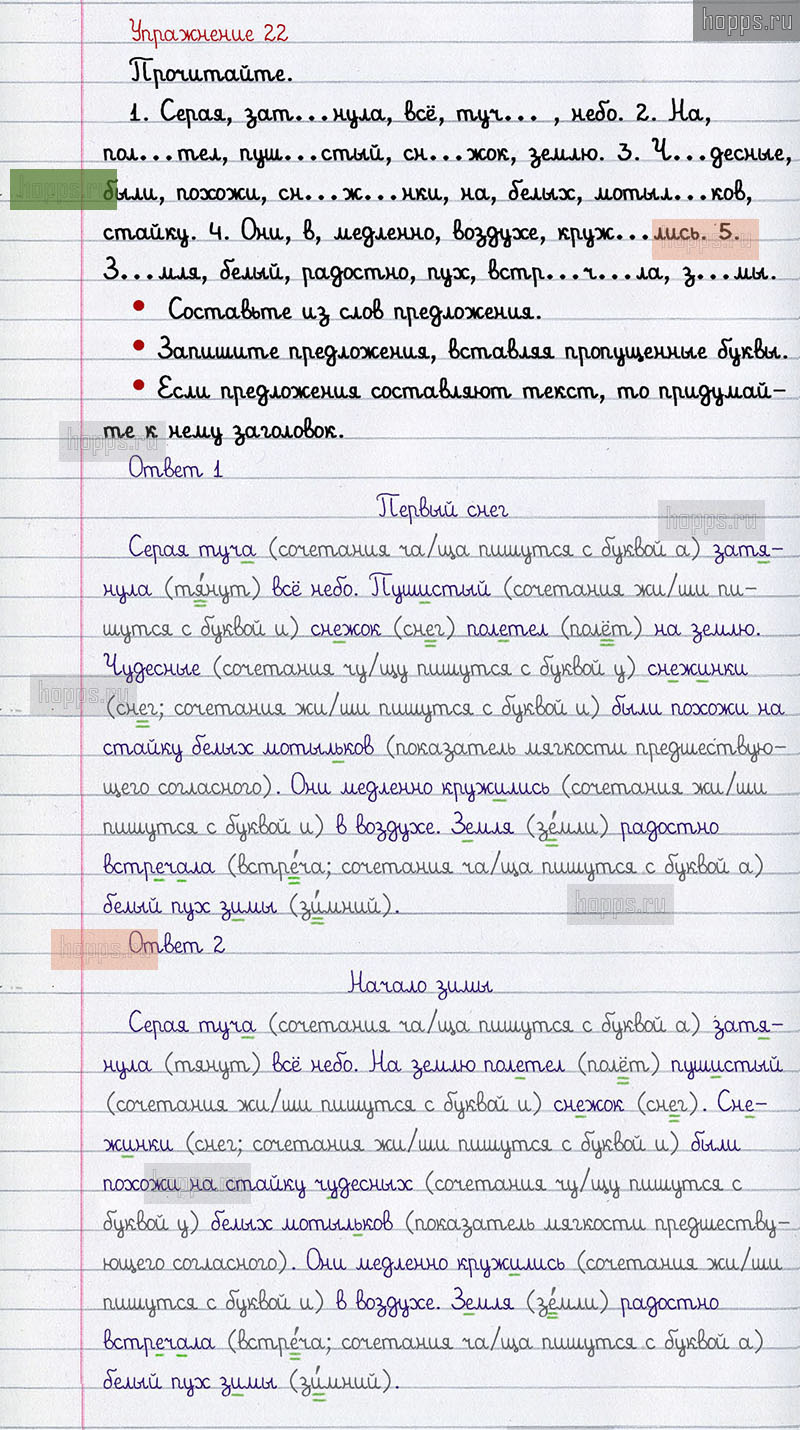 hopps.ru
Упражнение 22
Прочитайте.
1. Серая, зат...нула, всё, туч... , небо. 2. На,
пол...тел, пуш...стый, сн...жок, землю. 3. Ч...десные,
hopps.ru
были, похожи, сн...ж...нки, на, белых, мотыл...ков,
стайку. 4. Они, в, медленно, воздухе, круж...лись. 5.
hopps.ru
З...мля, белый, радостно, пух, встр...ч...ла, з...мы.
• Составьте из слов предложения.
• Запишите предложения, вставляя пропущенные буквы.
• Если предложения составляют текст, то придумай-
те к нему заголовок.
hopps.ru
Ответ 1
Первый снег
hopps.ru
Серая туча (сочетания ча/ща пишутся с буквой а) затя-
нула (тя́нут) всё небо. Пушистый (сочетания жи/ши пи-
шутся с буквой и) снежок (снег) полетел (полёт) на землю.
Чудесные (сочетания чу/щу пишутся с буквой у) снежинки
hopps.ru
(снег; сочетания жи/ши пишутся с буквой и) были похожи на
стайку белых мотыльков (показатель мягкости предшествую-
щего согласного). Они медленно кружились (сочетания жи/ши
пишутся с буквой и) в воздухе. Земля (зе́мли) радостно
встречала (встре́ча; сочетания ча/ща пишутся с буквой а)
белый пух зимы (зи́мний).
hopps.ru
Ответ 2
hopps.ru
Начало зимы
Серая туча (сочетания ча/ща пишутся с буквой а) затя-
нула (тянут) всё небо. На землю полетел (полёт) пушистый
(сочетания жи/ши пишутся с буквой и) снежок (снег). Сне-
жинки (снег; сочетания жи/ши пишутся с буквой и) были
похожи на стайку чудесных (сочетания чу/щу пишутся с
hopps.ru
буквой у) белых мотыльков (показатель мягкости предшеству-
ющего согласного). Они медленно кружились (сочетания жи/ши
пишутся с буквой и) в воздухе. Земля (зе́мли) радостно
встречала (встре́ча; сочетания ча/ща пишутся с буквой а)
белый пух зимы (зи́мний).